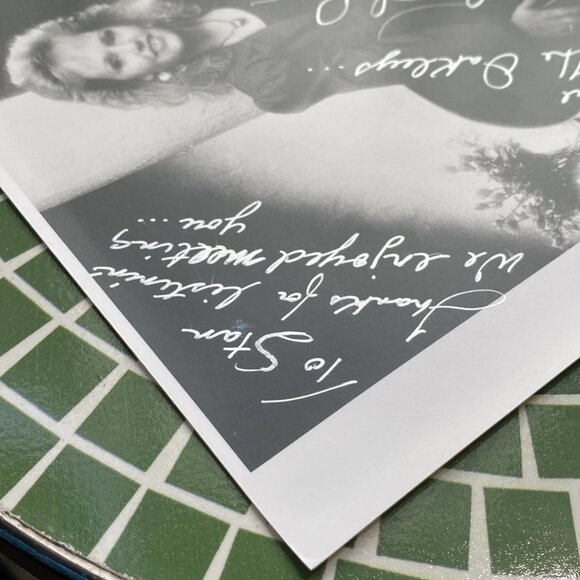 To Stan
Thanks for listenin'
We enjoyed meeting
you...
The Oakleys...